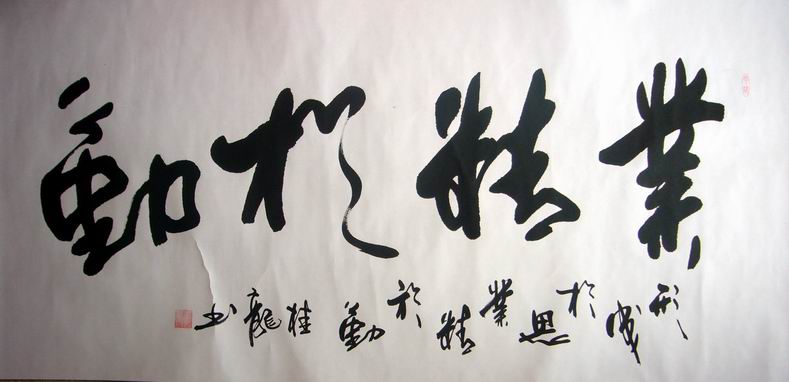 業精於勤
形成於思業精於勤桂龍书